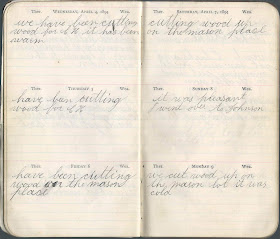 Ther. WEDNESDAY, APRIL 4, 1894 Wea.
we have been cutting
wood for it has been
warm
Ther. THURSDAY 5 Wea.
have been cutting
wood for
Ther. FRIDAY 6 Wea.
have been cutting
wood on the mason
place
Ther. SATURDAY, APRIL 7, 1894 Wea.
cutting wood up
on the mason place
Ther. SUNDAY 8 Wea.
it was pleasant
I went over to Johnson
Ther. MONDAY 9 Wea.
we cut wood up on
the mason lot it was
cold